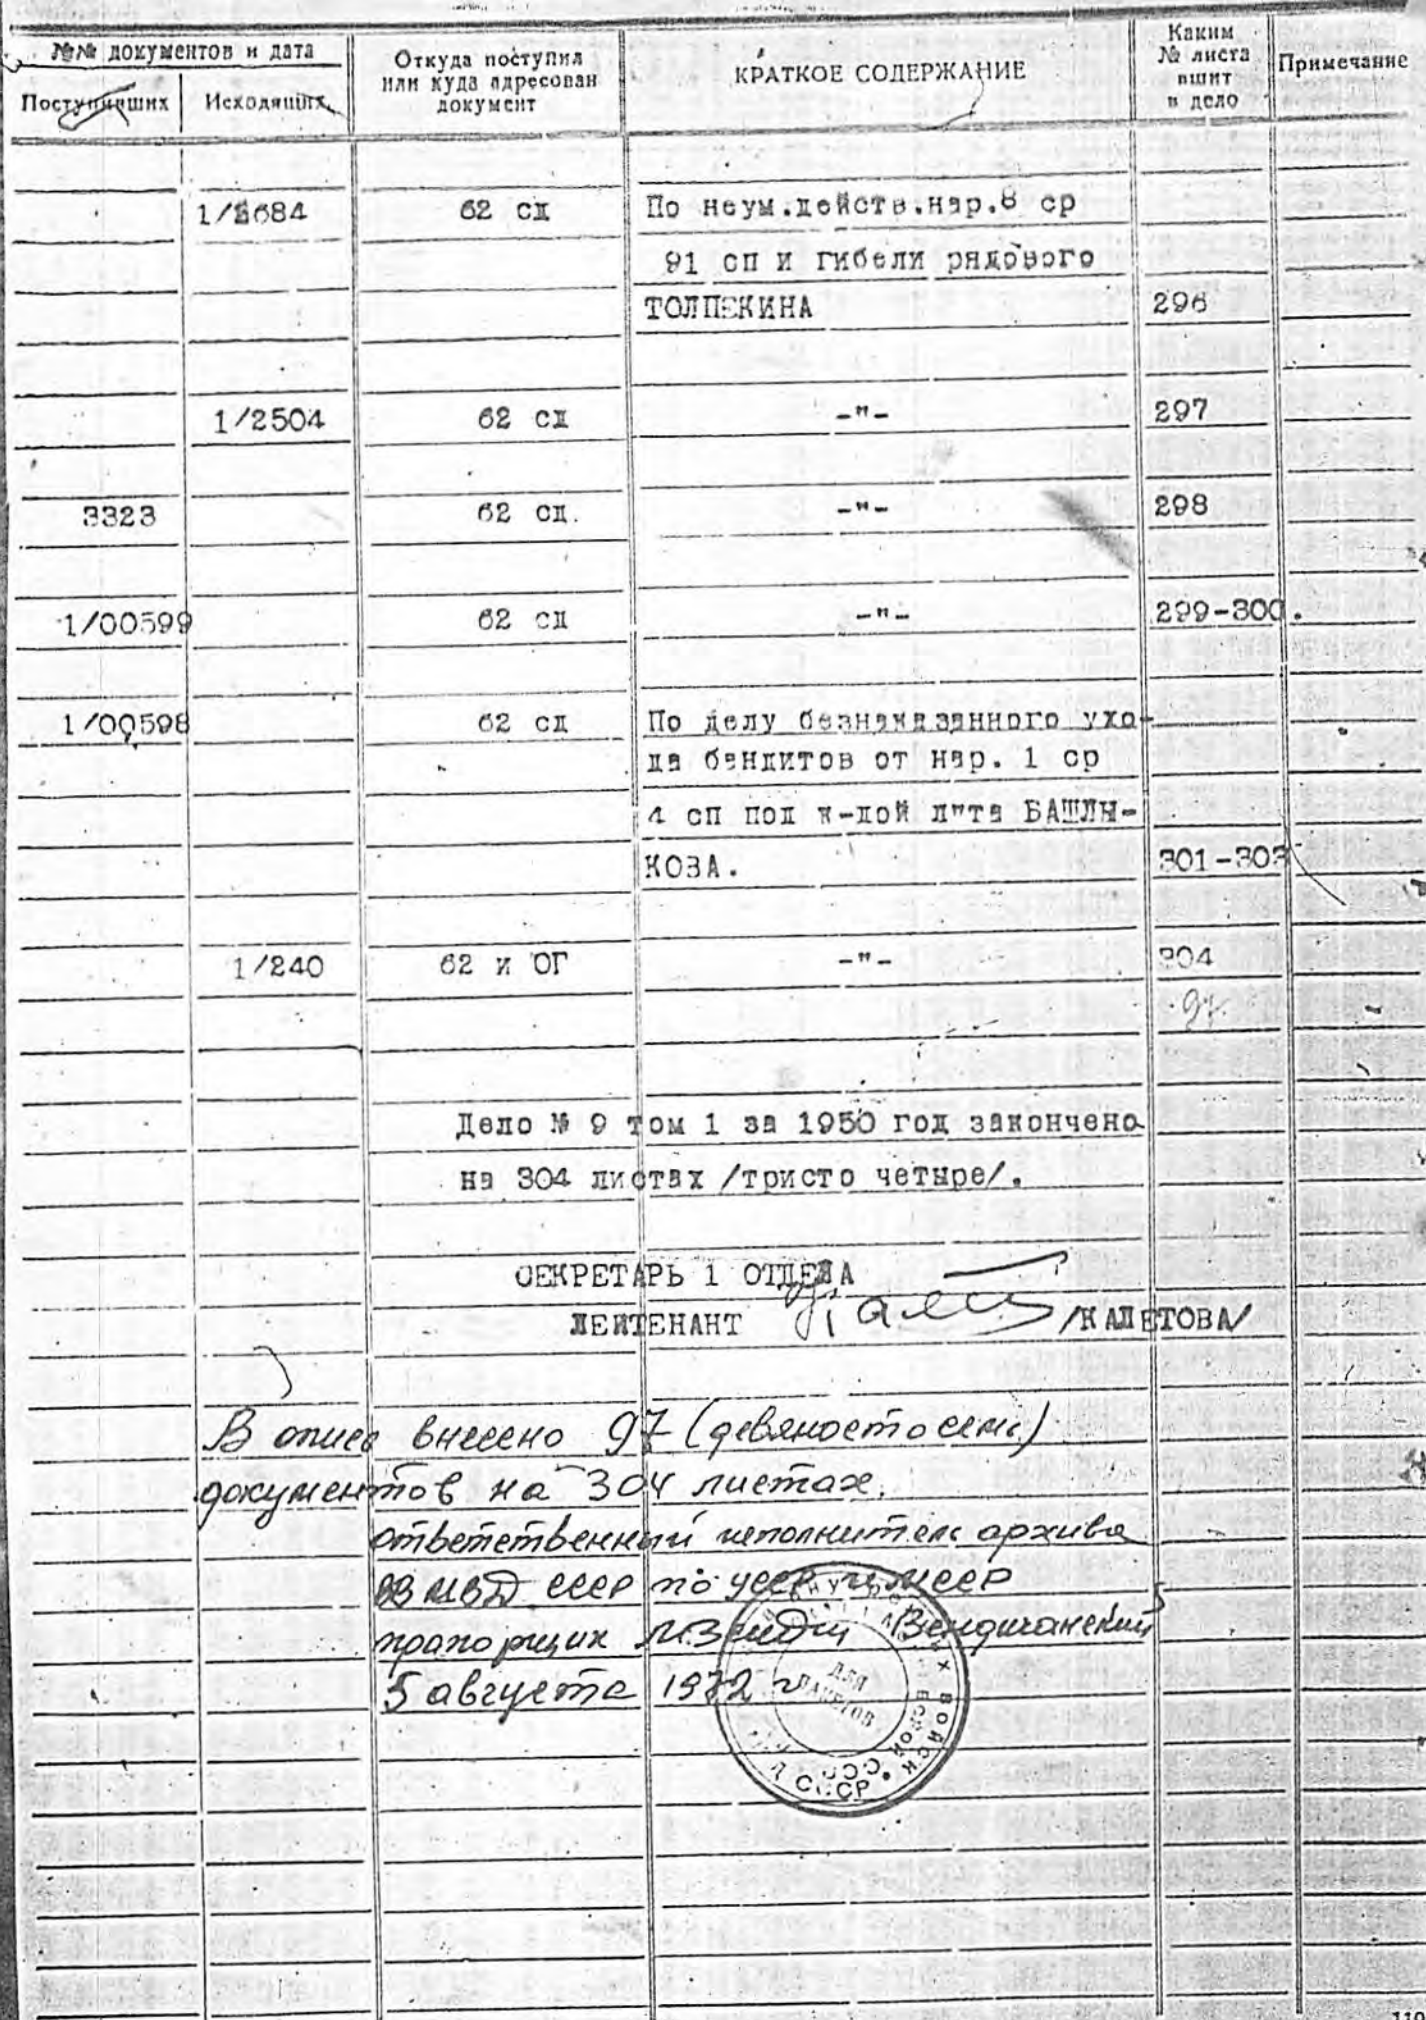 №№ документов и дата
Поступивших
Исходящих
Откуда поступил
или куда адресован
документ
КРАТКОЕ СОДЕРЖАНИЕ
Каким
№ листа
вшит
в дело
Примечание
1/2684 62 сд По неум.действ.нар.8 ср
91 сп и гибели рядового
ТОЛПЕКИНА 296
1/2504 62 сд -"- 297
3323 62 сд. -"- 298
1/00599 62 сд -"- 299-300.
1/00598 62 сд По делу безнаказанного ухо-
да бандитов от нар. 1 ср
4 сп под к-дой л"та БАШЛЫ-
КОВА. 301-303
1/240 62 и ОГ -"- 304
97.
Дело № 9 том 1 за 1950 год закончено
на 304 листах /тристо четыре/.
СЕКРЕТАРЬ 1 ОТДЕЛА
ЛЕЙТЕНАНТ /КАЛЕТОВА/
В опись внесено 97 (девяносто семь)
документов на 304 листах.
ответственный исполнитель архива
ВВ МВД СССР по УССР и МССР
прапорщик Вендичанский
5 августа 1972 г
ДЛЯ
ПАКЕТОВ
ВОЙСК
СССР
110